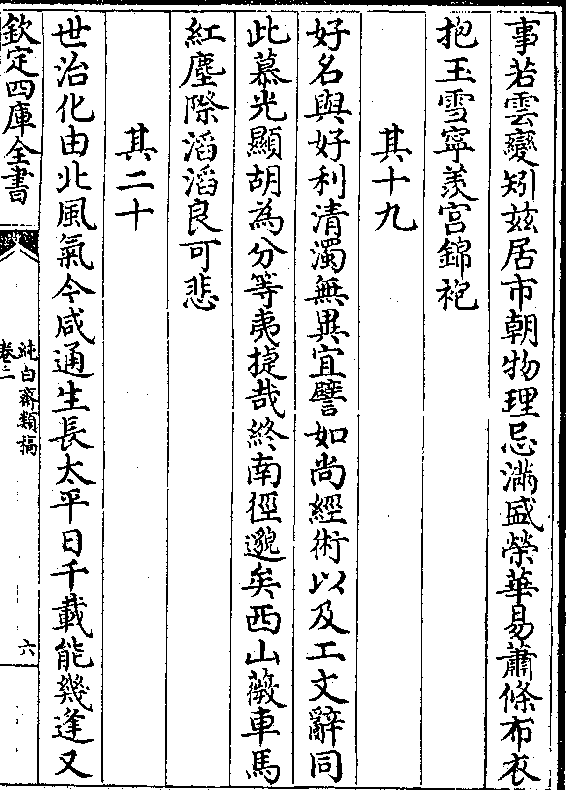 事若雲變矧兹居市朝物理忌滿盛榮華易蕭條布衣
抱玉雪寧羨宮錦袍
其十九
好名與好利清濁無異宜譬如尚經術以及工文辭同
此慕光顯胡為分等夷捷哉終南徑邈矣西山薇車馬
紅塵際滔滔良可悲
其二十
世治化由北風氣今咸通生長太平日千載能幾逢又
欽定四庫全書
純白齋類稿
卷二
六